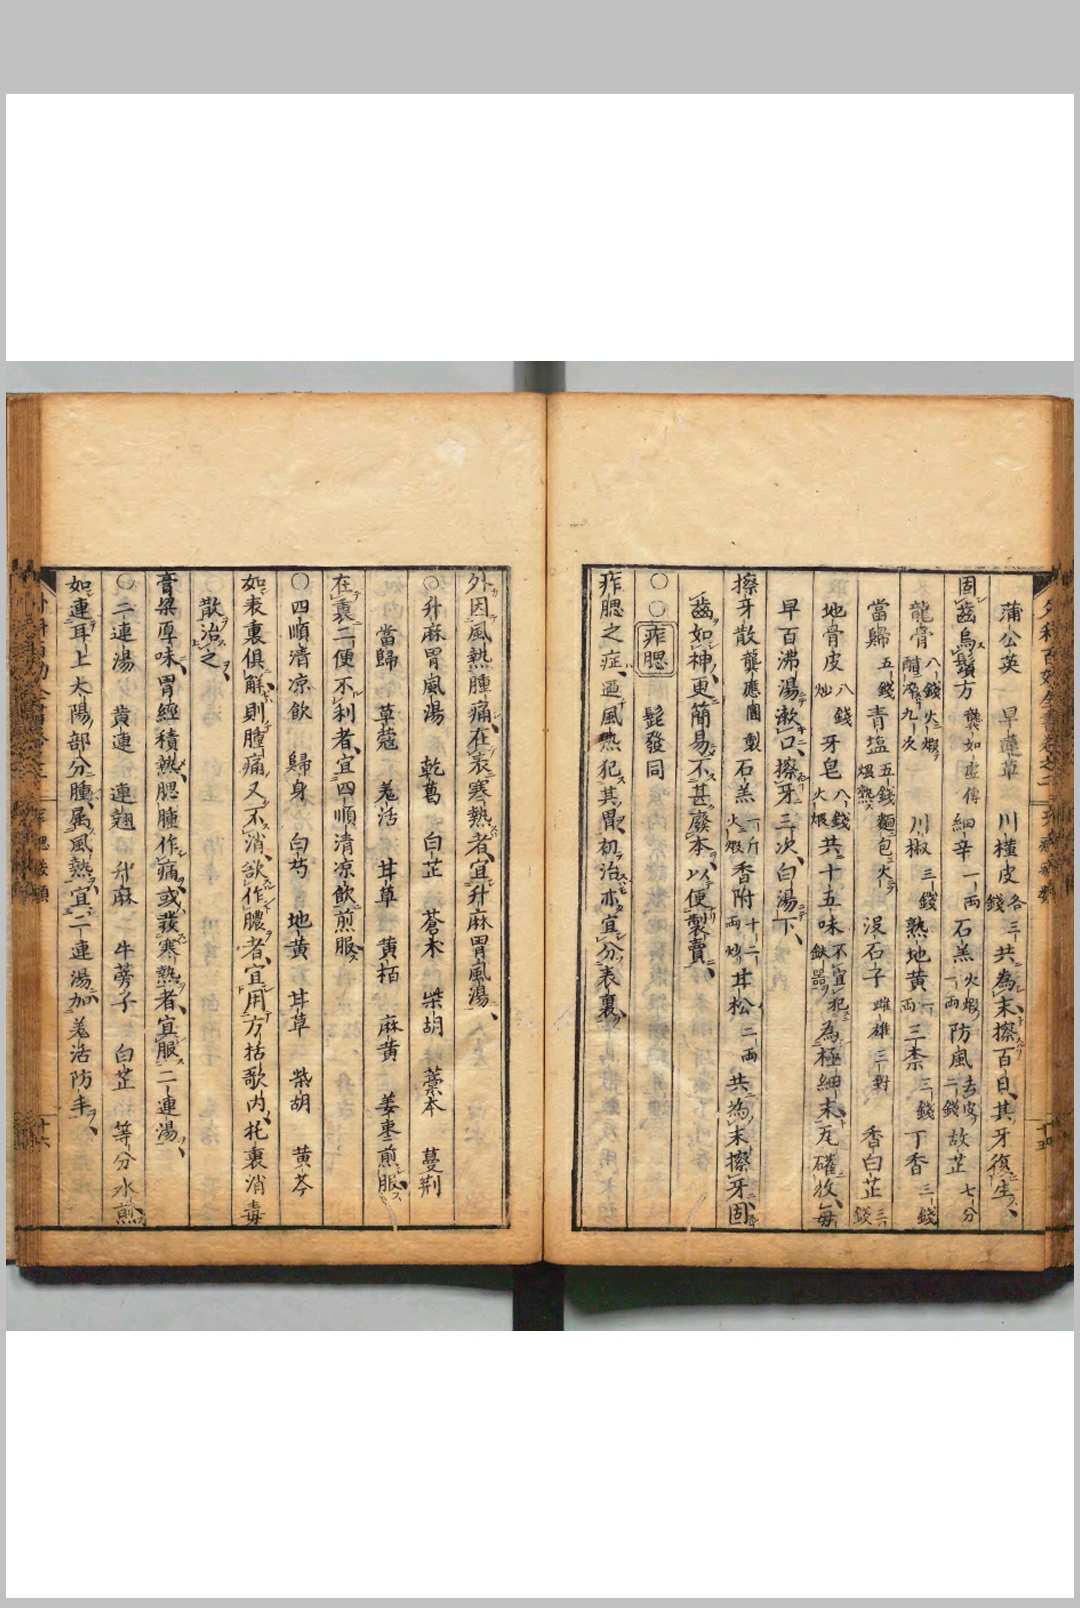 蒲公英 早蓮草 川槿皮各三錢 共為末擦百日其牙復生
固齒烏鬚方 龔如虛傳 細辛一兩 石羔火煅一兩 防風去皮二錢 故芷七分
龍骨八錢火煅醋淬九次 川椒三錢 熟地黄一兩 三柰三錢 丁香三錢
當歸五錢 青塩五錢煨熱 麵包火 沒石子雌雄三對 香白芷三錢
地骨皮八錢炒 牙皂八錢火煅 共十五味不宜犯鉄器 為極細末 磁收每
早百沸湯漱口擦牙三次白湯下
擦牙散 龔應圓製 石羔一斤火煅 香附十二兩炒 甘松二兩 共為末擦牙固
齒如神更簡易不甚廢本以便製賣
○○痄腮 髭發同
痄腮之症 風熱犯其胃初治亦宜分表裏
外因風熱腫痛在表寒熱者宜升麻胃風湯
○升麻胃風湯 乾葛 白芷 蒼朮 柴胡 藁本 蔓荆
當歸 草蔻 羗活 甘草 黄栢 麻黄 姜棗煎服
在裏二便不利者宜四順清凉飲煎服
○四順清凉飲 歸身 白芍 地黄 甘草 柴胡 黄芩
如表裏俱解則腫痛又不消欲作膿者宜用方括歌内托裏消毒
散治之
膏粱厚味胃經積熱腮腫作痛或發寒熱者宜服二連湯
○二連湯 黄連 連翹 升麻 牛蒡子 白芷 等分水煎
如連耳上太陽部分腫属風熱宜二連湯加羗活防丰